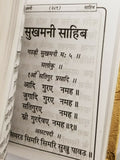 (३२९) साहिब
सुखमनी साहिब
गउड़ी सुखमनी म: ५ ॥
सलोकु ॥
१ओं सतिगुर प्रसादि ॥
आदि गुरए नमह ॥
जुगादि गुरए नमह ॥
सतिगुरए नमह ॥
स्री गुरदेवए नमह ॥१॥
असटपदी ॥
सिमरउ सिमरि सिमरि सुखु पावउ ॥